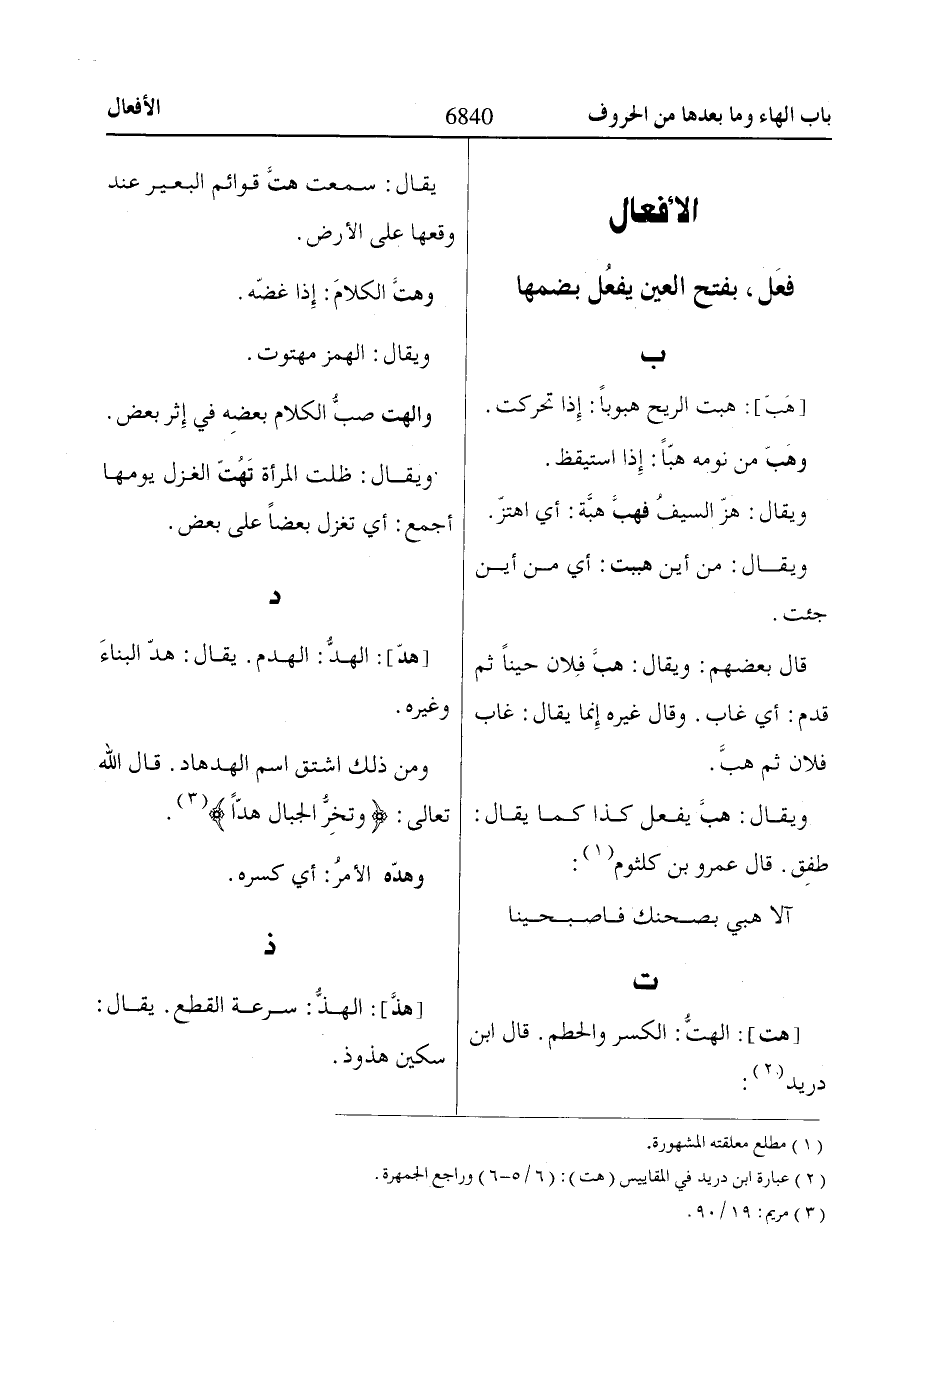 باب الهاء وما بعدها من الحروف
6840
الأفعال
الأفعال
فعَل، بفتح العين يفعُل بضمها
ب
[هَبَ]: هبت الريح هبوباً: إذا تحركت.
وهَبّ من نومه هبّاً: إذا استيقظ.
ويقال: هزّ السيفُ فهبَّ هبَّة: أي اهتزّ.
ويقــال: من أين هببت: أي مـن أيـن
جئت.
قال بعضهم: ويقال: هبَّ فلان حيناً ثم
قدم: أي غاب. وقال غيره إنما يقال: غاب
فلان ثم هبَّ.
ويقـال: هبَّ يفـعل كـذا كـمـا يقال:
طفق. قال عمرو بن كلثوم(١):
آلا هبي بصـحنك فـاصـبـحـينا
ت
[هت]: الهتُّ: الكسر والحطم. قال ابن
دريد(٢):
يقـال: سـمعت هتَّ قـوائم البعيـر عند
وقعها على الأرض.
وهتَّ الكلامَ: إذا غضّه.
ويقال: الهمز مهتوت.
والهت صبُّ الكلام بعضه في إثر بعض.
ويقــال: ظلت المرأة تَهُتّ الغزل يومهـا
أجمع: أي تغزل بعضاً على بعض.
د
[هدّ]: الهـدُّ: الهـدم. يقـال: هدّ البناءَ
وغيره.
ومن ذلك اشتق اسم الهـدهاد. قـال الله
تعالى: ﴿وتخرُّ الجبال هدّاً﴾(٣).
وهدّه الأمرُ: أي كسره.
ذ
[هذَّ]: الهـذُّ: سـرعـة القطع. يقـال:
سكين هذوذ.
(١) مطلع معلقته المشهورة.
(٢) عبارة ابن دريد في المقاييس (هت): (٦/٥-٦) وراجع الجمهرة.
(٣) مريم: ٩٠/١٩.